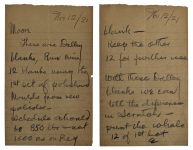 Nov 12/21
Moon
These are Dailey
blanks, Run over
12 blanks using the
1st set of polished
Moulds from new
polisher -
Schedule should
be 850 lbs - not
1500 as on Reg
Nov 12/21
blank -
Keep the other
12 for further use
With these Dailey
blanks we can
tell the difference
in
print the whole
12 of 1st lot
E